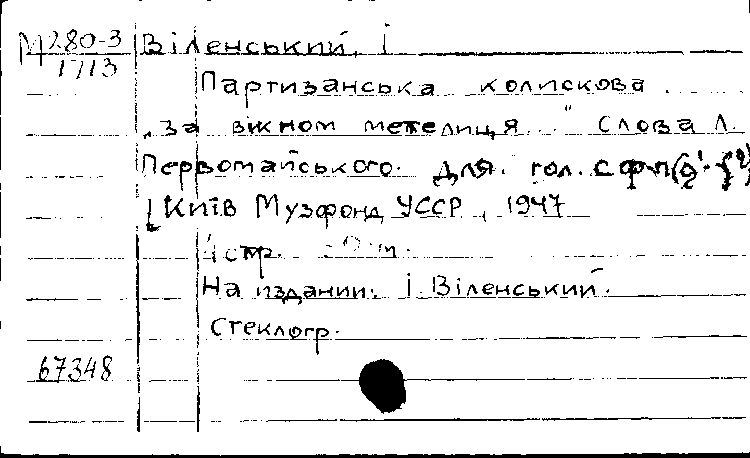 М280-3
1713
Віленський, І
Партизанська колискова
„за вікном метелиця..." Слова Л.
Первомайського. Для. гол. с ф-п
Київ Музфонд УССР, 1947
4 стр.
На издании: І. Віленський.
Стеклогр.
67348